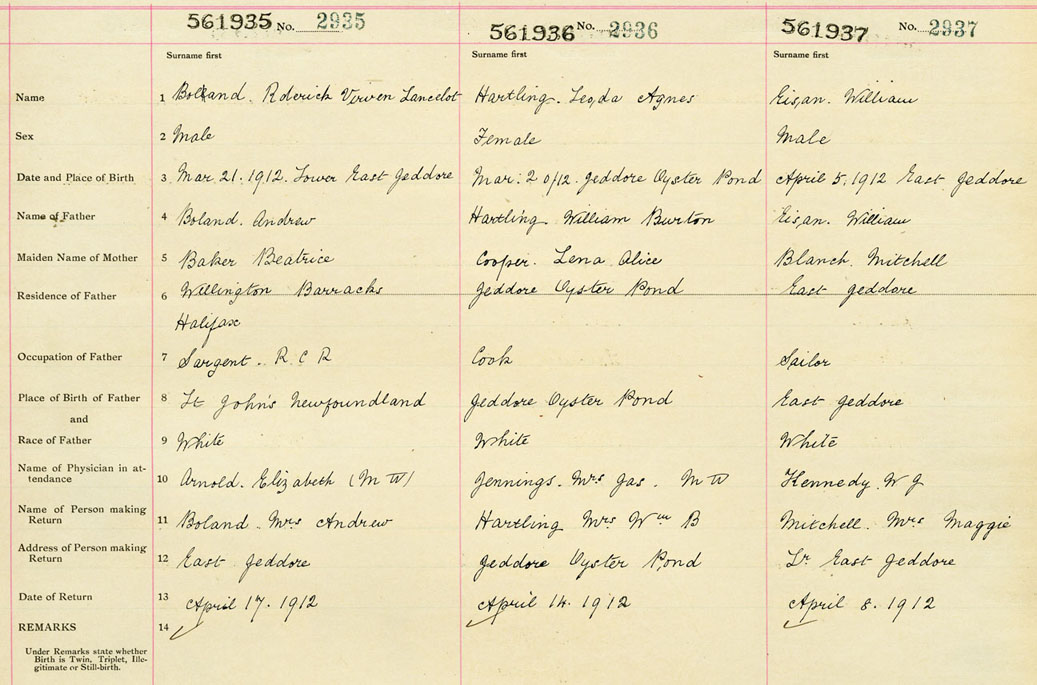 561935 No. 2935 561936 No. 2936 561937 No. 2937
Surname first Surname first Surname first
Name 1 Bolland. Roderick Vivven Lancelot Hartling. Leoda Agnes Eisan. William
Sex 2 Male Female Male
Date and Place of Birth 3 Mar. 21. 1912. Lower East Jeddore Mar: 20/12. Jeddore Oyster Pond April 5, 1912 East Jeddore
Name of Father 4 Boland. Andrew Hartling. William Burton Eisan. William
Maiden Name of Mother 5 Baker Beatrice Cooper. Lena Alice Blanch. Mitchell
Residence of Father 6 Wellington Barracks Jeddore Oyster Pond East Jeddore
Halifax
Occupation of Father 7 Sargent. R C R Cook Sailor
Place of Birth of Father 8 St John's Newfoundland Jeddore Oyster Pond East Jeddore
and
Race of Father 9 White White White
Name of Physician in at-
tendance 10 Arnold. Elizabeth (M W) Jennings. Mrs Jas. M W Kennedy. W J
Name of Person making
Return 11 Boland. Mrs Andrew Hartling Mrs Wm B Mitchell. Mrs Maggie
Address of Person making
Return 12 East Jeddore Jeddore Oyster Pond Lr East Jeddore
Date of Return 13 April 17. 1912 April 14. 1912 April 8. 1912
REMARKS 14
Under Remarks state whether
Birth is Twin, Triplet, Ille-
gitimate or Still-birth.